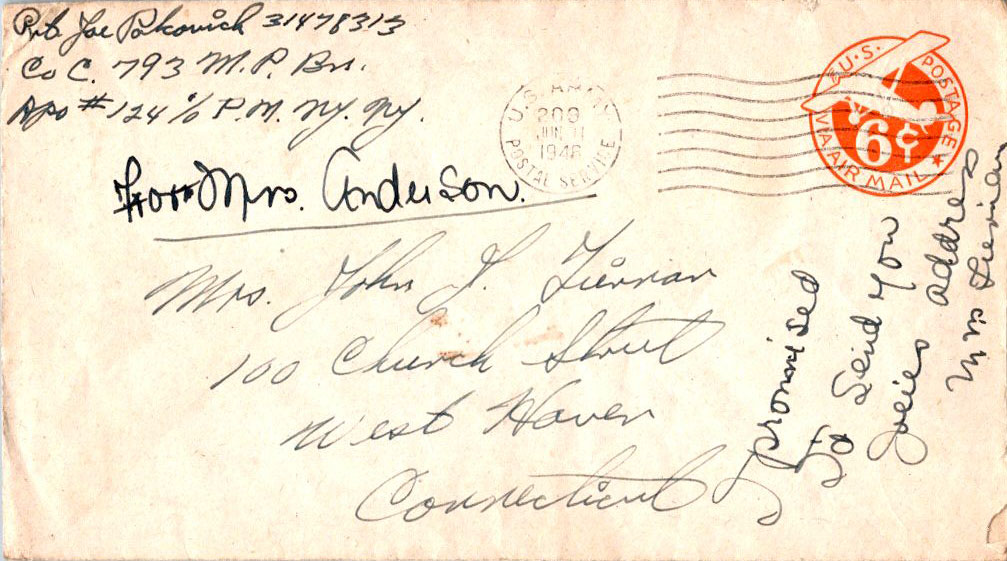 Pvt. Joe Potkovich 31478313
Co C. 793 M.P. Bn.
Apo # 124 c/o P.M. Ny. Ny.
U.S. ARMY
200
JUN 11
1946
POSTAL SERVICE
U.S. POSTAGE
6¢
VIA AIR MAIL
For Mrs. Anderson.
Mrs. John J. Tiernan
100 Church Street
West Haven
Connecticut
I promised
To Send you
Joeies address
Mrs Tiernan